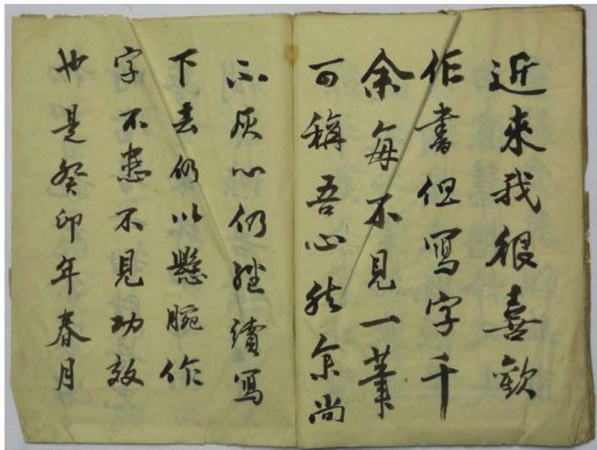 近來我很喜歡
作書但寫字千
余每不見一筆
可稱吾心然余尚
不灰心仍繼續寫
下去仍以懸腕作
字不患不見功效
也是癸卯年春月